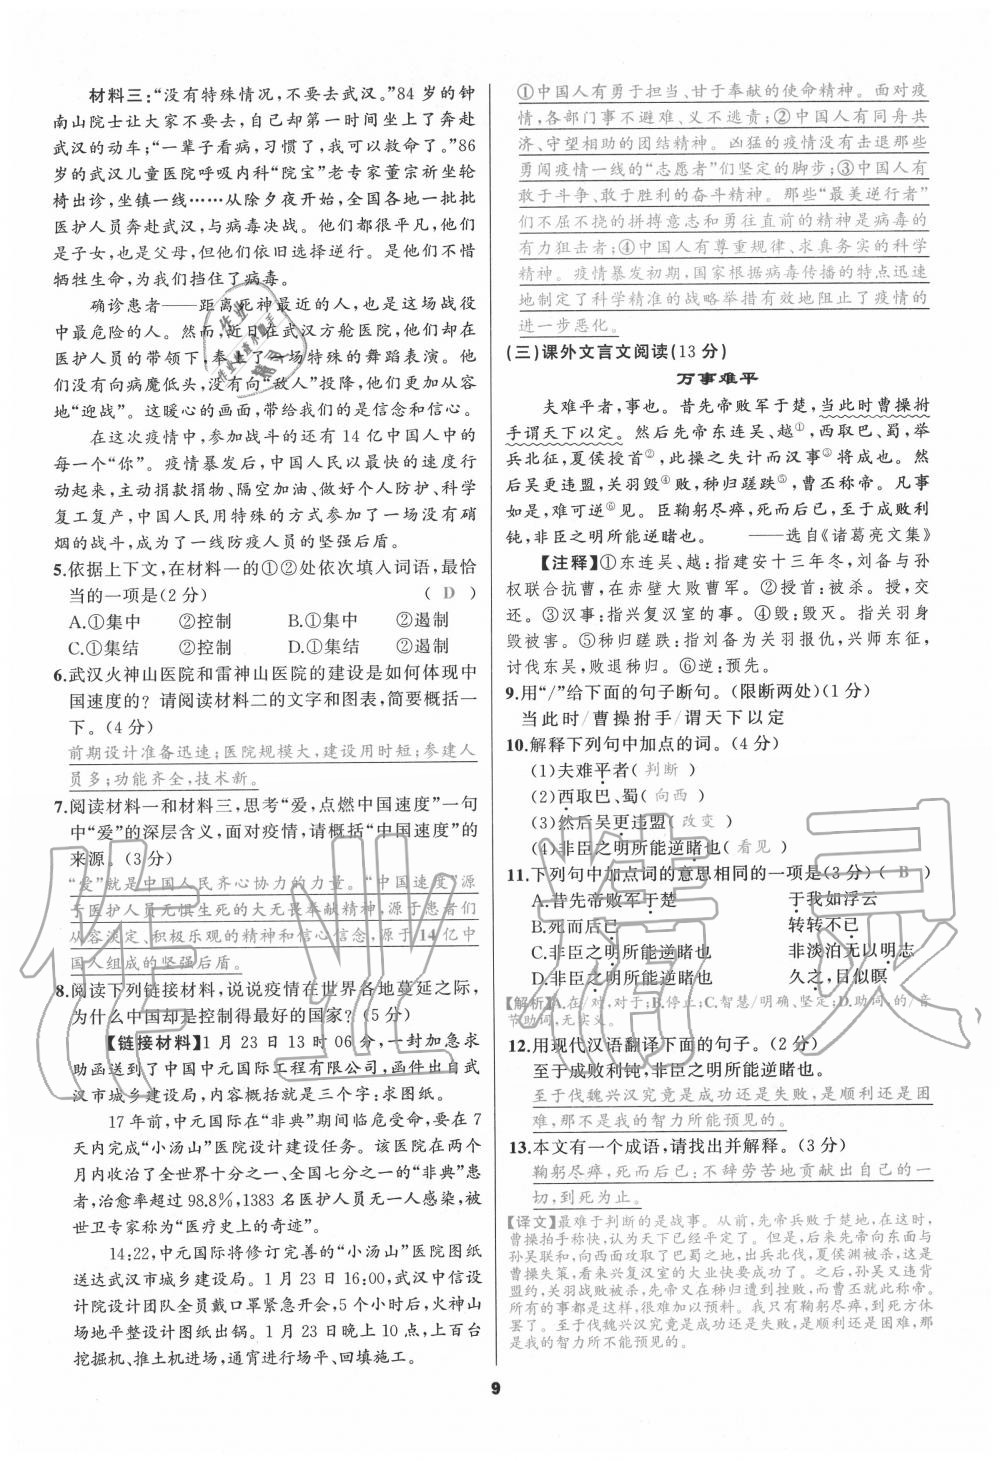 材料三:“没有特殊情况,不要去武汉。”84 岁的钟
南山院士让大家不要去,自己却第一时间坐上了奔赴
武汉的动车;“一辈子看病,习惯了,我可以救命了。”86
岁的武汉儿童医院呼吸内科“院宝”老专家董宗祈坐轮
椅出诊,坐镇一线……从除夕夜开始,全国各地一批批
医护人员奔赴武汉,与病毒决战。他们都很平凡,他们
是子女,也是父母,但他们依旧选择逆行。是他们不惜
牺牲生命,为我们挡住了病毒。
确诊患者——距离死神最近的人,也是这场战役
中最危险的人。然而,近日在武汉方舱医院,他们却在
医护人员的带领下,奉上了一场特殊的舞蹈表演。他
们没有向病魔低头,没有向“敌人”投降,他们就是从容
地“迎战”。这暖心的画面,带给我们的是信念和信心。
在这次疫情中,参加战斗的还有 14 亿中国人中的
每一个“你”。疫情暴发后,中国人民以最快的速度行
动起来,主动捐款捐物、隔空加油、做好个人防护、科学
复工复产,中国人民用特殊的方式参加了一场没有硝
烟的战斗,成为了一线防疫人员的坚强后盾。
5.依据上下文,在材料一的①②处依次填入词语,最恰
当的一项是(2 分) ( D )
A.①集中 ②控制 B.①集中 ②遏制
C.①集结 ②控制 D.①集结 ②遏制
6.武汉火神山医院和雷神山医院的建设是如何体现中
国速度的？请阅读材料二的文字和图表,简要概括一
下。(4 分)
前期设计准备迅速;医院规模大,建设用时短;参建人
员多;功能齐全,技术新。
7.阅读材料一和材料三,思考“爱,点燃中国速度”一句
中“爱”的深层含义,面对疫情,请概括“中国速度”的
来源。(3 分)
“爱”就是中国人民齐心协力的力量。“中国速度”源
于医护人员无惧生死的大无畏奉献精神,源于患者们
从容淡定、积极乐观的精神和信心信念,源于 14 亿中
国人组成的坚强后盾。
8.阅读下列链接材料,说说疫情在世界各地蔓延之际,
为什么中国却是控制得最好的国家?(5 分)
【链接材料】1 月 23 日 13 时 06 分,一封加急求
助函送到了中国中元国际工程有限公司,函件出自武
汉市城乡建设局,内容概括就是三个字:求图纸。
17 年前,中元国际在“非典”期间临危受命,要在 7
天内完成“小汤山”医院设计建设任务。该医院在两个
月内收治了全世界十分之一、全国七分之一的“非典”患
者,治愈率超过 98.8%,1383 名医护人员无一人感染,被
世卫专家称为“医疗史上的奇迹”。
14:22,中元国际将修订完善的“小汤山”医院图纸
送达武汉市城乡建设局。1 月 23 日 16:00,武汉中信设
计院设计团队全员戴口罩紧急开会,5 个小时后,火神山
场地平整设计图纸出锅。1 月 23 日晚上 10 点,上百台
挖掘机、推土机进场,通宵进行场平、回填施工。
①中国人有勇于担当、甘于奉献的使命精神。面对疫
情,各部门事不避难、义不逃责;②中国人有同舟共
济、守望相助的团结精神。凶猛的疫情没有击退那些
勇闯疫情一线的“志愿者”们坚定的脚步;③中国人有
敢于斗争、敢于胜利的奋斗精神。那些“最美逆行者”
们不屈不挠的拼搏意志和勇往直前的精神是病毒的
有力狙击者;④中国人有尊重规律、求真务实的科学
精神。疫情暴发初期,国家根据病毒传播的特点迅速
地制定了科学精准的战略举措有效地阻止了疫情的
进一步恶化。
(三)课外文言文阅读(13 分)
万事难平
夫难平者,事也。昔先帝败军于楚,当此时曹操拊
手谓天下以定。然后先帝东连吴、越①,西取巴、蜀,举
兵北征,夏侯授首②,此操之失计而汉事③将成也。然
后吴更违盟,关羽毁④败,秭归蹉跌⑤,曹丕称帝。凡事
如是,难可逆⑥见。臣鞠躬尽瘁,死而后已,至于成败利
钝,非臣之明所能逆睹也。 ——选自《诸葛亮文集》
【注释】①东连吴、越:指建安十三年冬,刘备与孙
权联合抗曹,在赤壁大败曹军。②授首:被杀。授,交
还。③汉事:指兴复汉室的事。④毁:毁灭。指关羽身
毁被害。⑤秭归蹉跌:指刘备为关羽报仇,兴师东征,
讨伐东吴,败退秭归。⑥逆:预先。
9.用“/”给下面的句子断句。(限断两处)(1 分)
当此时/曹操拊手/谓天下以定
10.解释下列句中加点的词。(4 分)
(1)夫难平者( 判断 )
(2)西取巴、蜀( 向西 )
(3)然后吴更违盟( 改变 )
(4)非臣之明所能逆睹也( 看见 )
11.下列句中加点词的意思相同的一项是(3 分)( B )
A.昔先帝败军于楚 于我如浮云
B.死而后已 转转不已
C.非臣之明所能逆睹也 非淡泊无以明志
D.非臣之明所能逆睹也 久之,目似瞑
【解析】A.在/对,对于;B.停止;C.智慧/明确、坚定;D.助词,的/音
节助词,无实义。
12.用现代汉语翻译下面的句子。(2 分)
至于成败利钝,非臣之明所能逆睹也。
至于伐魏兴汉究竟是成功还是失败,是顺利还是困
难,那不是我的智力所能预见的。
13.本文有一个成语,请找出并解释。(3 分)
鞠躬尽瘁,死而后已:不辞劳苦地贡献出自己的一
切,到死为止。
【译文】最难于判断的是战事。从前,先帝兵败于楚地,在这时
曹操拍手称快,认为天下已经平定了。但是,后来先帝向东面与
孙吴联和,向西面攻取了巴蜀之地,出兵北伐,夏侯渊被杀。这是
曹操失策,看来兴复汉室的大业快要成功了。之后,孙吴又违背
盟约,关羽战败被杀,先帝又在秭归遭到挫败,而曹丕就此称帝。
所有的事都是这样,很难加以预料。我只有鞠躬尽瘁,到死方休
罢了。至于伐魏兴汉究竟是成功还是失败,是顺利还是困难,那
是我的智力所不能预见的。
9
作业精灵